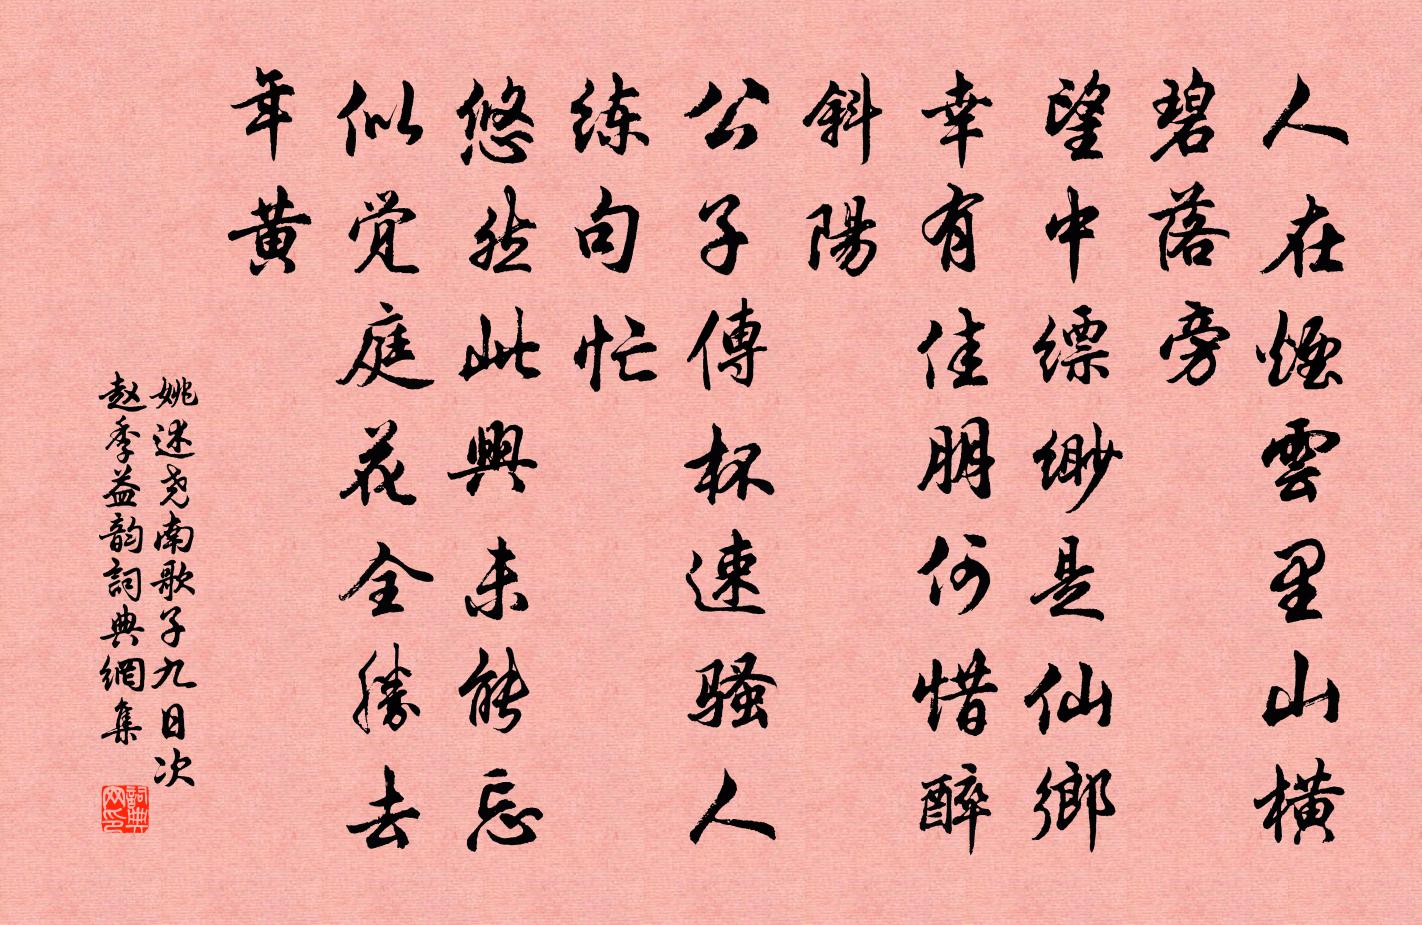 人在煙雲里山橫
碧落旁
望中縹緲是仙鄉
幸有佳朋何惜醉
斜陽
公子傳杯速騷人
练句忙
悠然此興未能忘
似覚庭花全勝去
年黄
姚述尧南歌子九日次
赵季益韵詞典網集
詞典网印